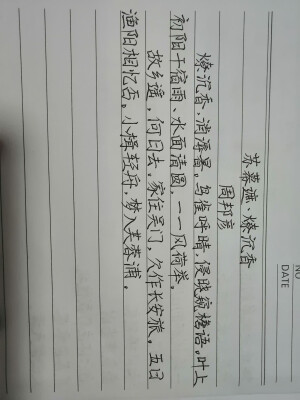 NO
DATE
苏幕遮、燎沉香
周邦彦
燎沉香,消溽暑。鸟雀呼晴,侵晓窥檐语。叶上
初阳干宿雨、水面清圆,一一风荷举。
故乡遥,何日去。家住吴门,久作长安旅。五月
渔阳相忆否。小楫轻舟,梦入芙蓉浦。